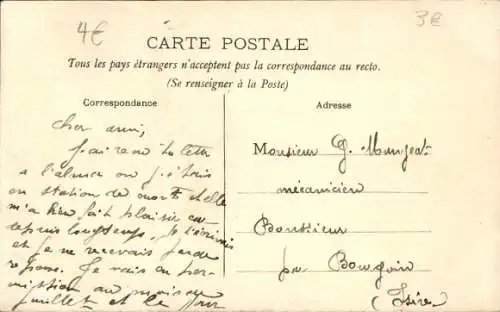 4€
3€
CARTE POSTALE
Tous les pays étrangers n'acceptent pas la correspondance au recto.
(Se renseigner à la Poste)
Correspondance
Adresse
Cher ami,
J'ai reçu ta lettre
a l'
on station de et elle
m'a bien fait plaisir car
depuis longtemps, je t'écrivais
et je ne recevais pas de
réponse. Je vais en per-
mission au mois de
juillet et le
Monsieur G.
mécanicien
par Bourgoin
(Isère